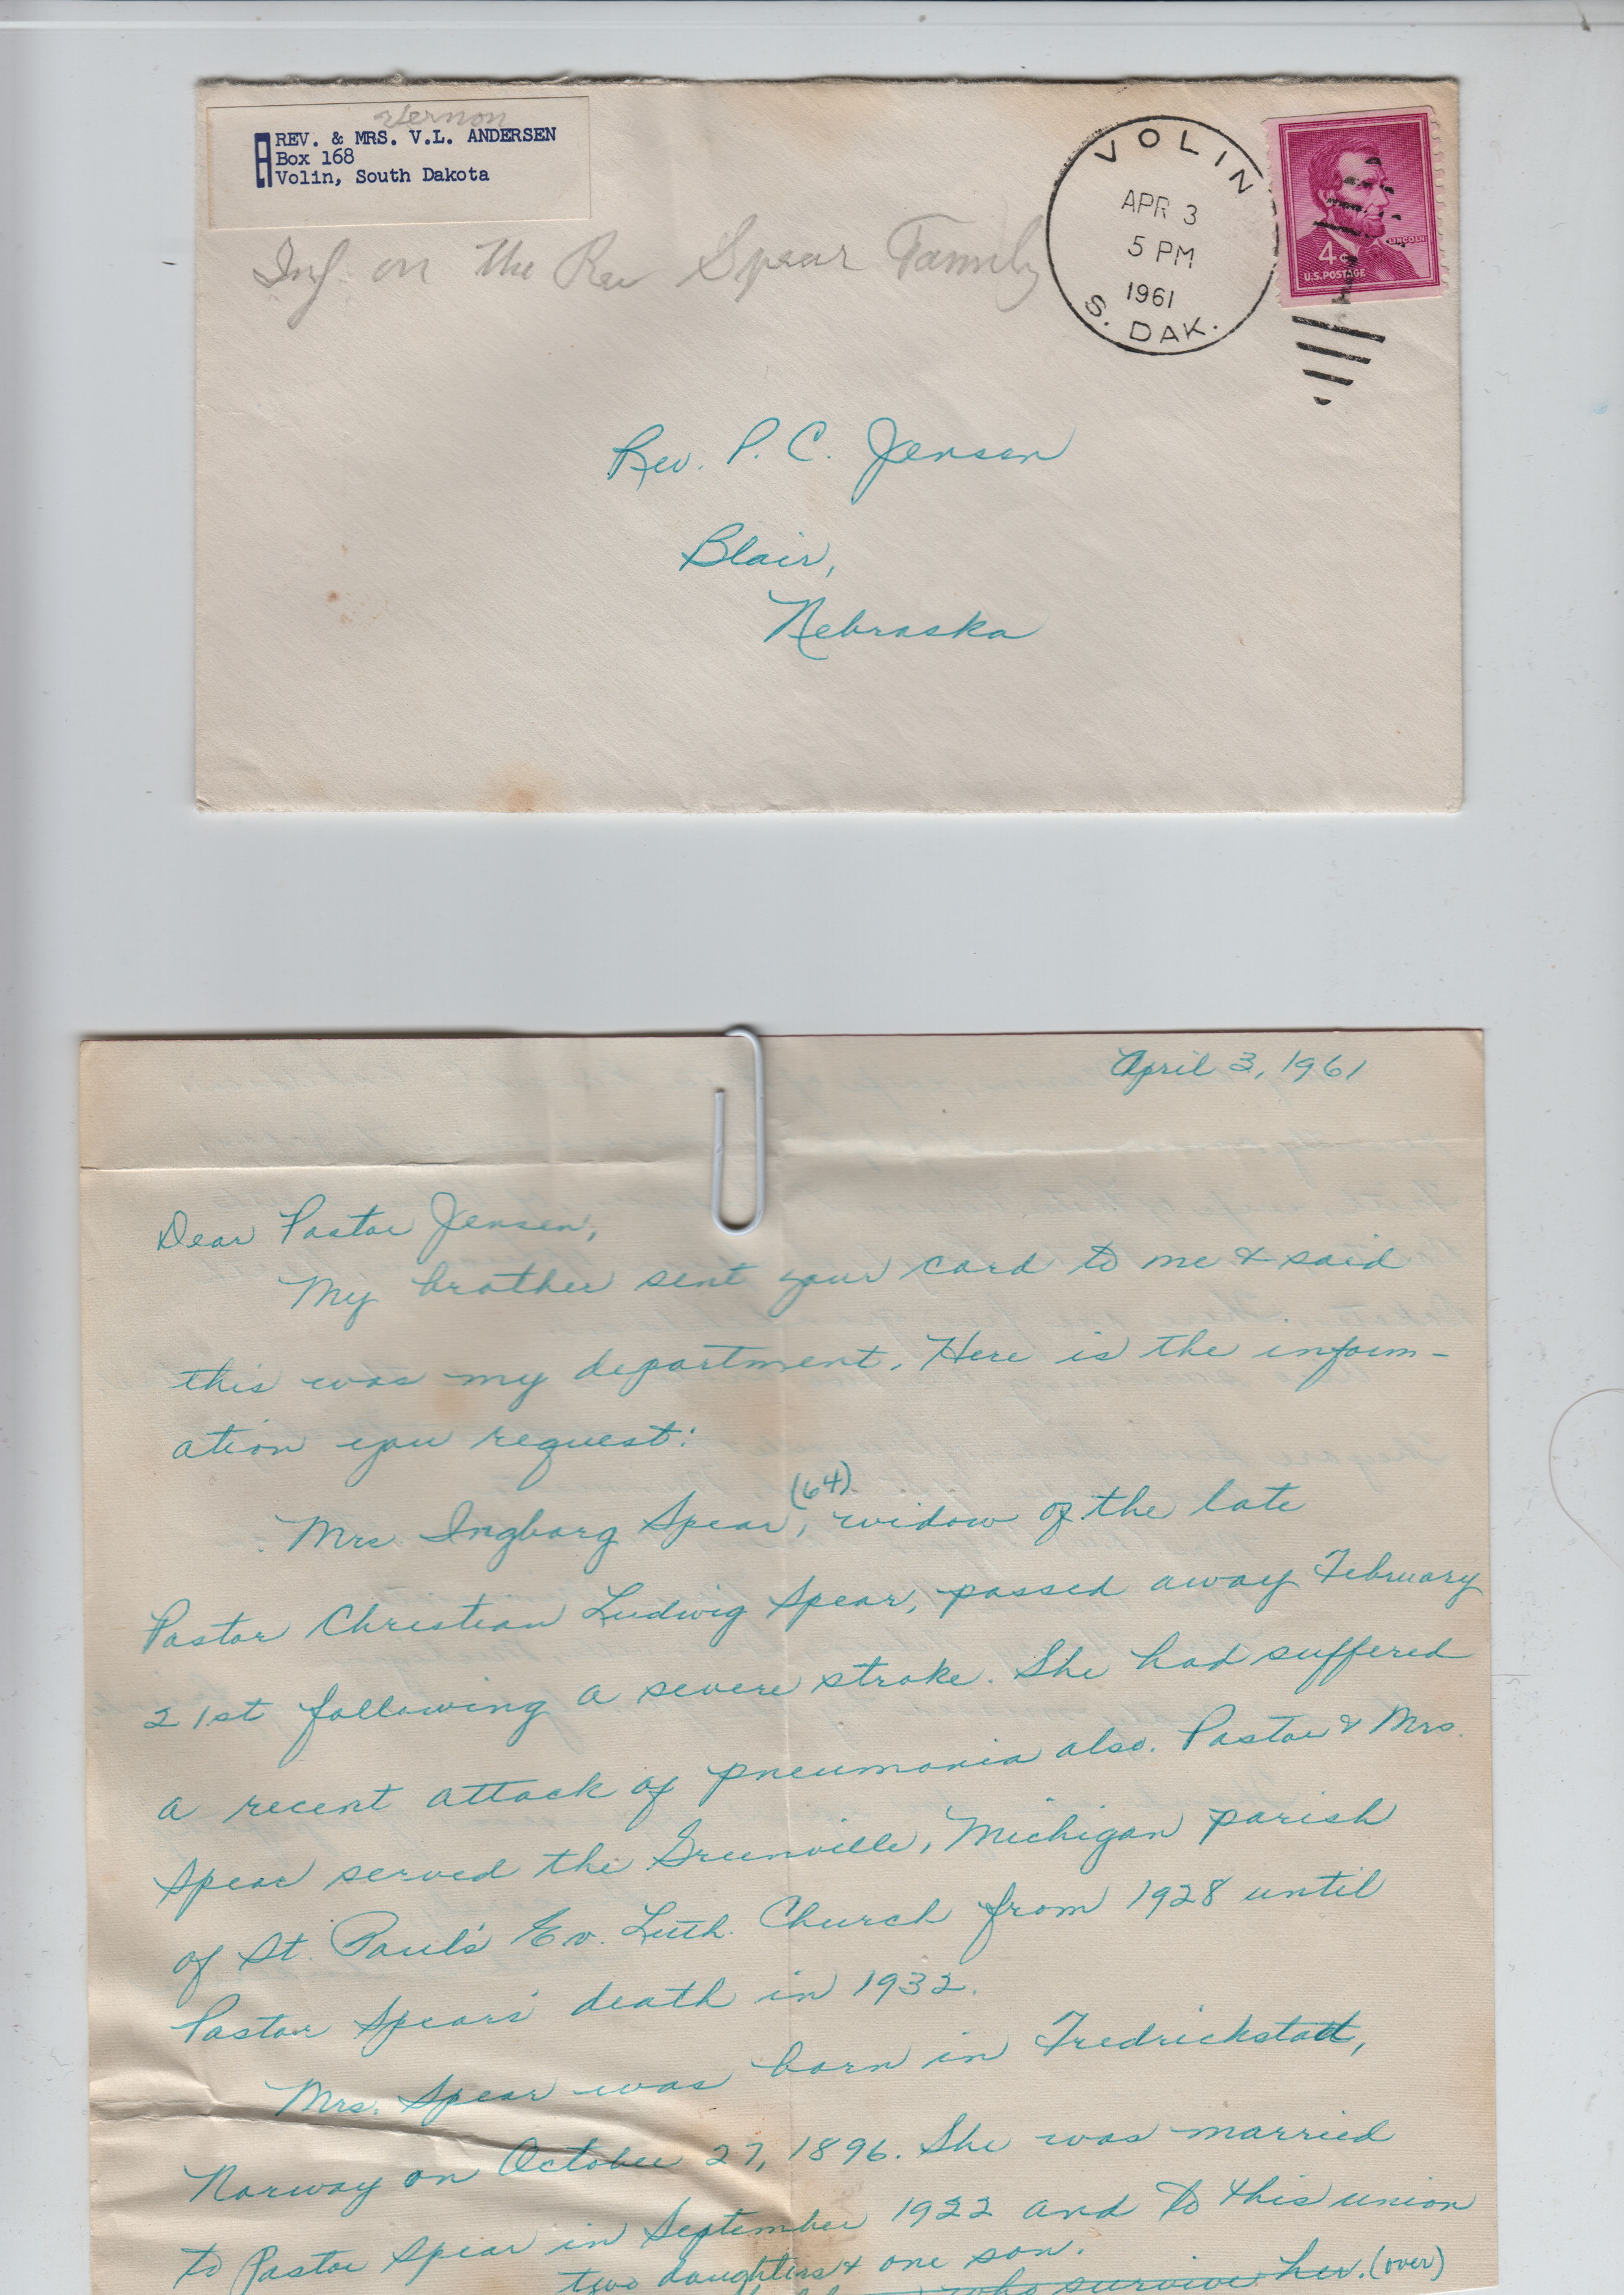 Vernon
REV. & MRS. V.L. ANDERSEN
Box 168
Volin, South Dakota
Inf. on the Rev Spear Family
VOLIN
APR 3
5 PM
1961
S. DAK.
LINCOLN
4¢
U.S. POSTAGE
Rev. P. C. Jensen
Blair,
Nebraska
April 3, 1961
Dear Pastor Jensen,
My brother sent your card to me & said
this was my department. Here is the inform-
ation you request:
(64)
Mrs Ingborg Spear, widow of the late
Pastor Christian Ludwig Spear, passed away February
21st following a severe stroke. She had suffered
a recent attack of pneumonia also. Pastor & Mrs.
Spear served the Greenville, Michigan parish
of St. Paul's Ev. Luth. Church from 1928 until
Pastor Spears' death in 1932.
Mrs. Spear was born in Fredrickstatt,
Norway on October 27, 1896. She was married
to Pastor Spear in September 1922 and to this union
two daughters & one son.
who survive her. (over)